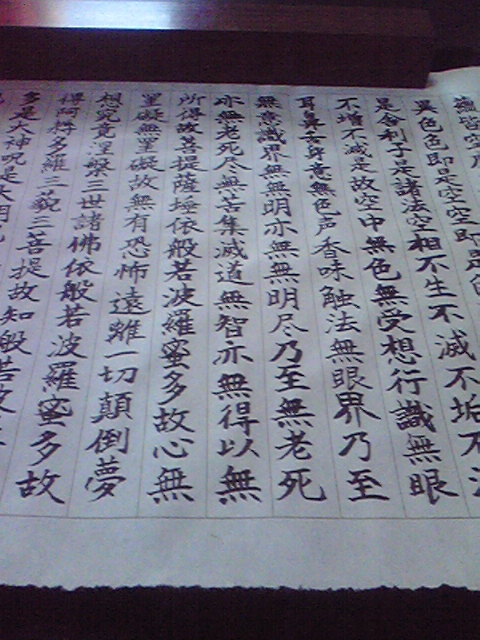 蘊皆空度
異色色即是空空即是色
是舍利子是諸法空相不生不滅不垢不
不増不減是故空中無色無受想行識無眼
耳鼻舌身意無色声香味触法無眼界乃至
無意識界無無明亦無無明尽乃至無老死
亦無老死尽無苦集滅道無智亦無得以無
所得故菩提薩埵依般若波羅蜜多故心無
罣礙無罣礙故無有恐怖遠離一切顛倒夢
想究竟涅槃三世諸佛依般若波羅蜜多故
得阿耨多羅三藐三菩提故知般若波
多是大神呪是大明